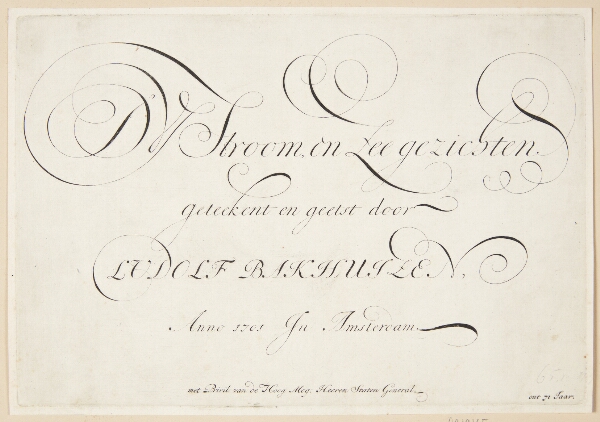 D'Y Stroom, en Zee gezichten.
Geteekent en geetst door
LUDOLF BAKHUIZEN,
Anno 1701 In Amsterdam
met Privil. van de Hoog Mog. Heeren Staten General.
out 71 Jaar.